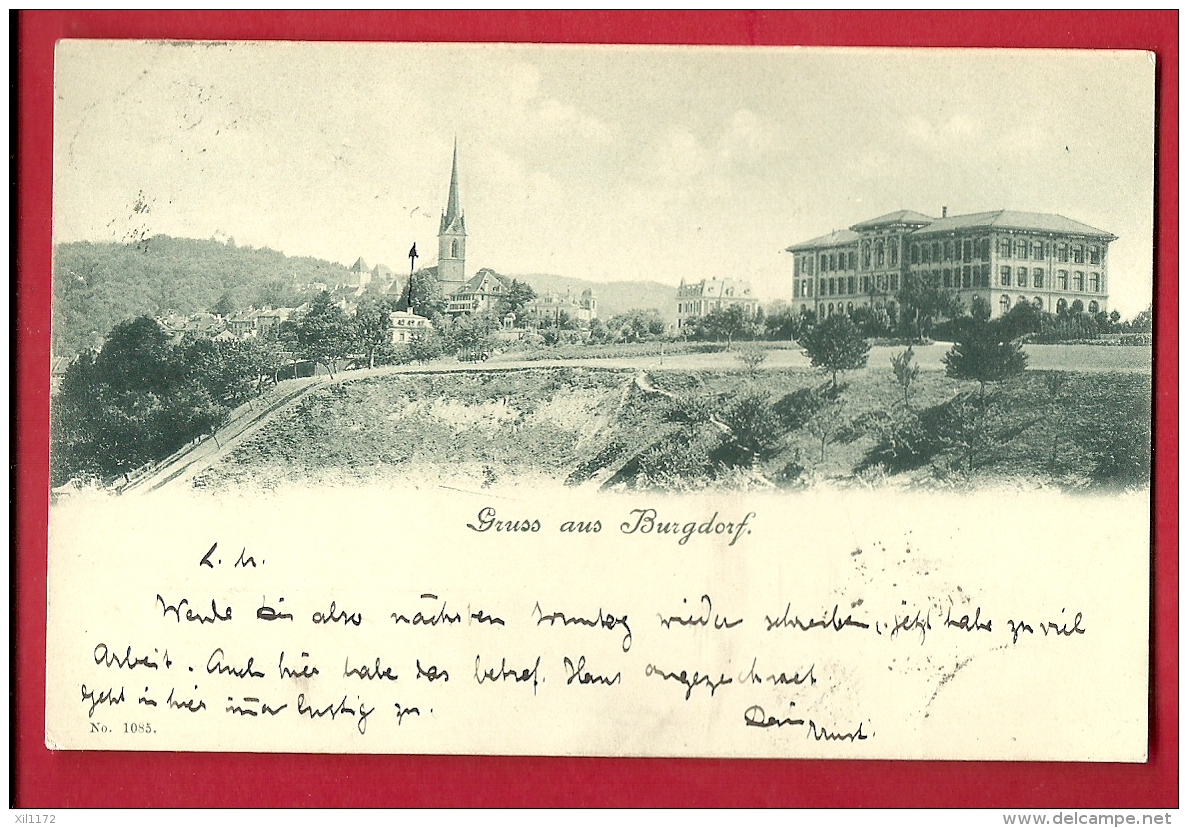 Gruss aus Burgdorf.
L. M.
Werde also nächsten Sonntag wieder schreiben, jetzt habe zu viel
Arbeit. Auch hier habe das betref. Haus angezeichnet.
Geht in hier immer lustig zu.
Dein
Ernst.
No. 1085.
Xil1172
delcampe.net